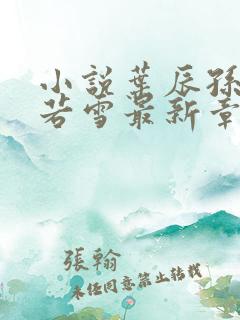 小說葉辰孫
若雪最新章
張翰
未经同意禁止转载